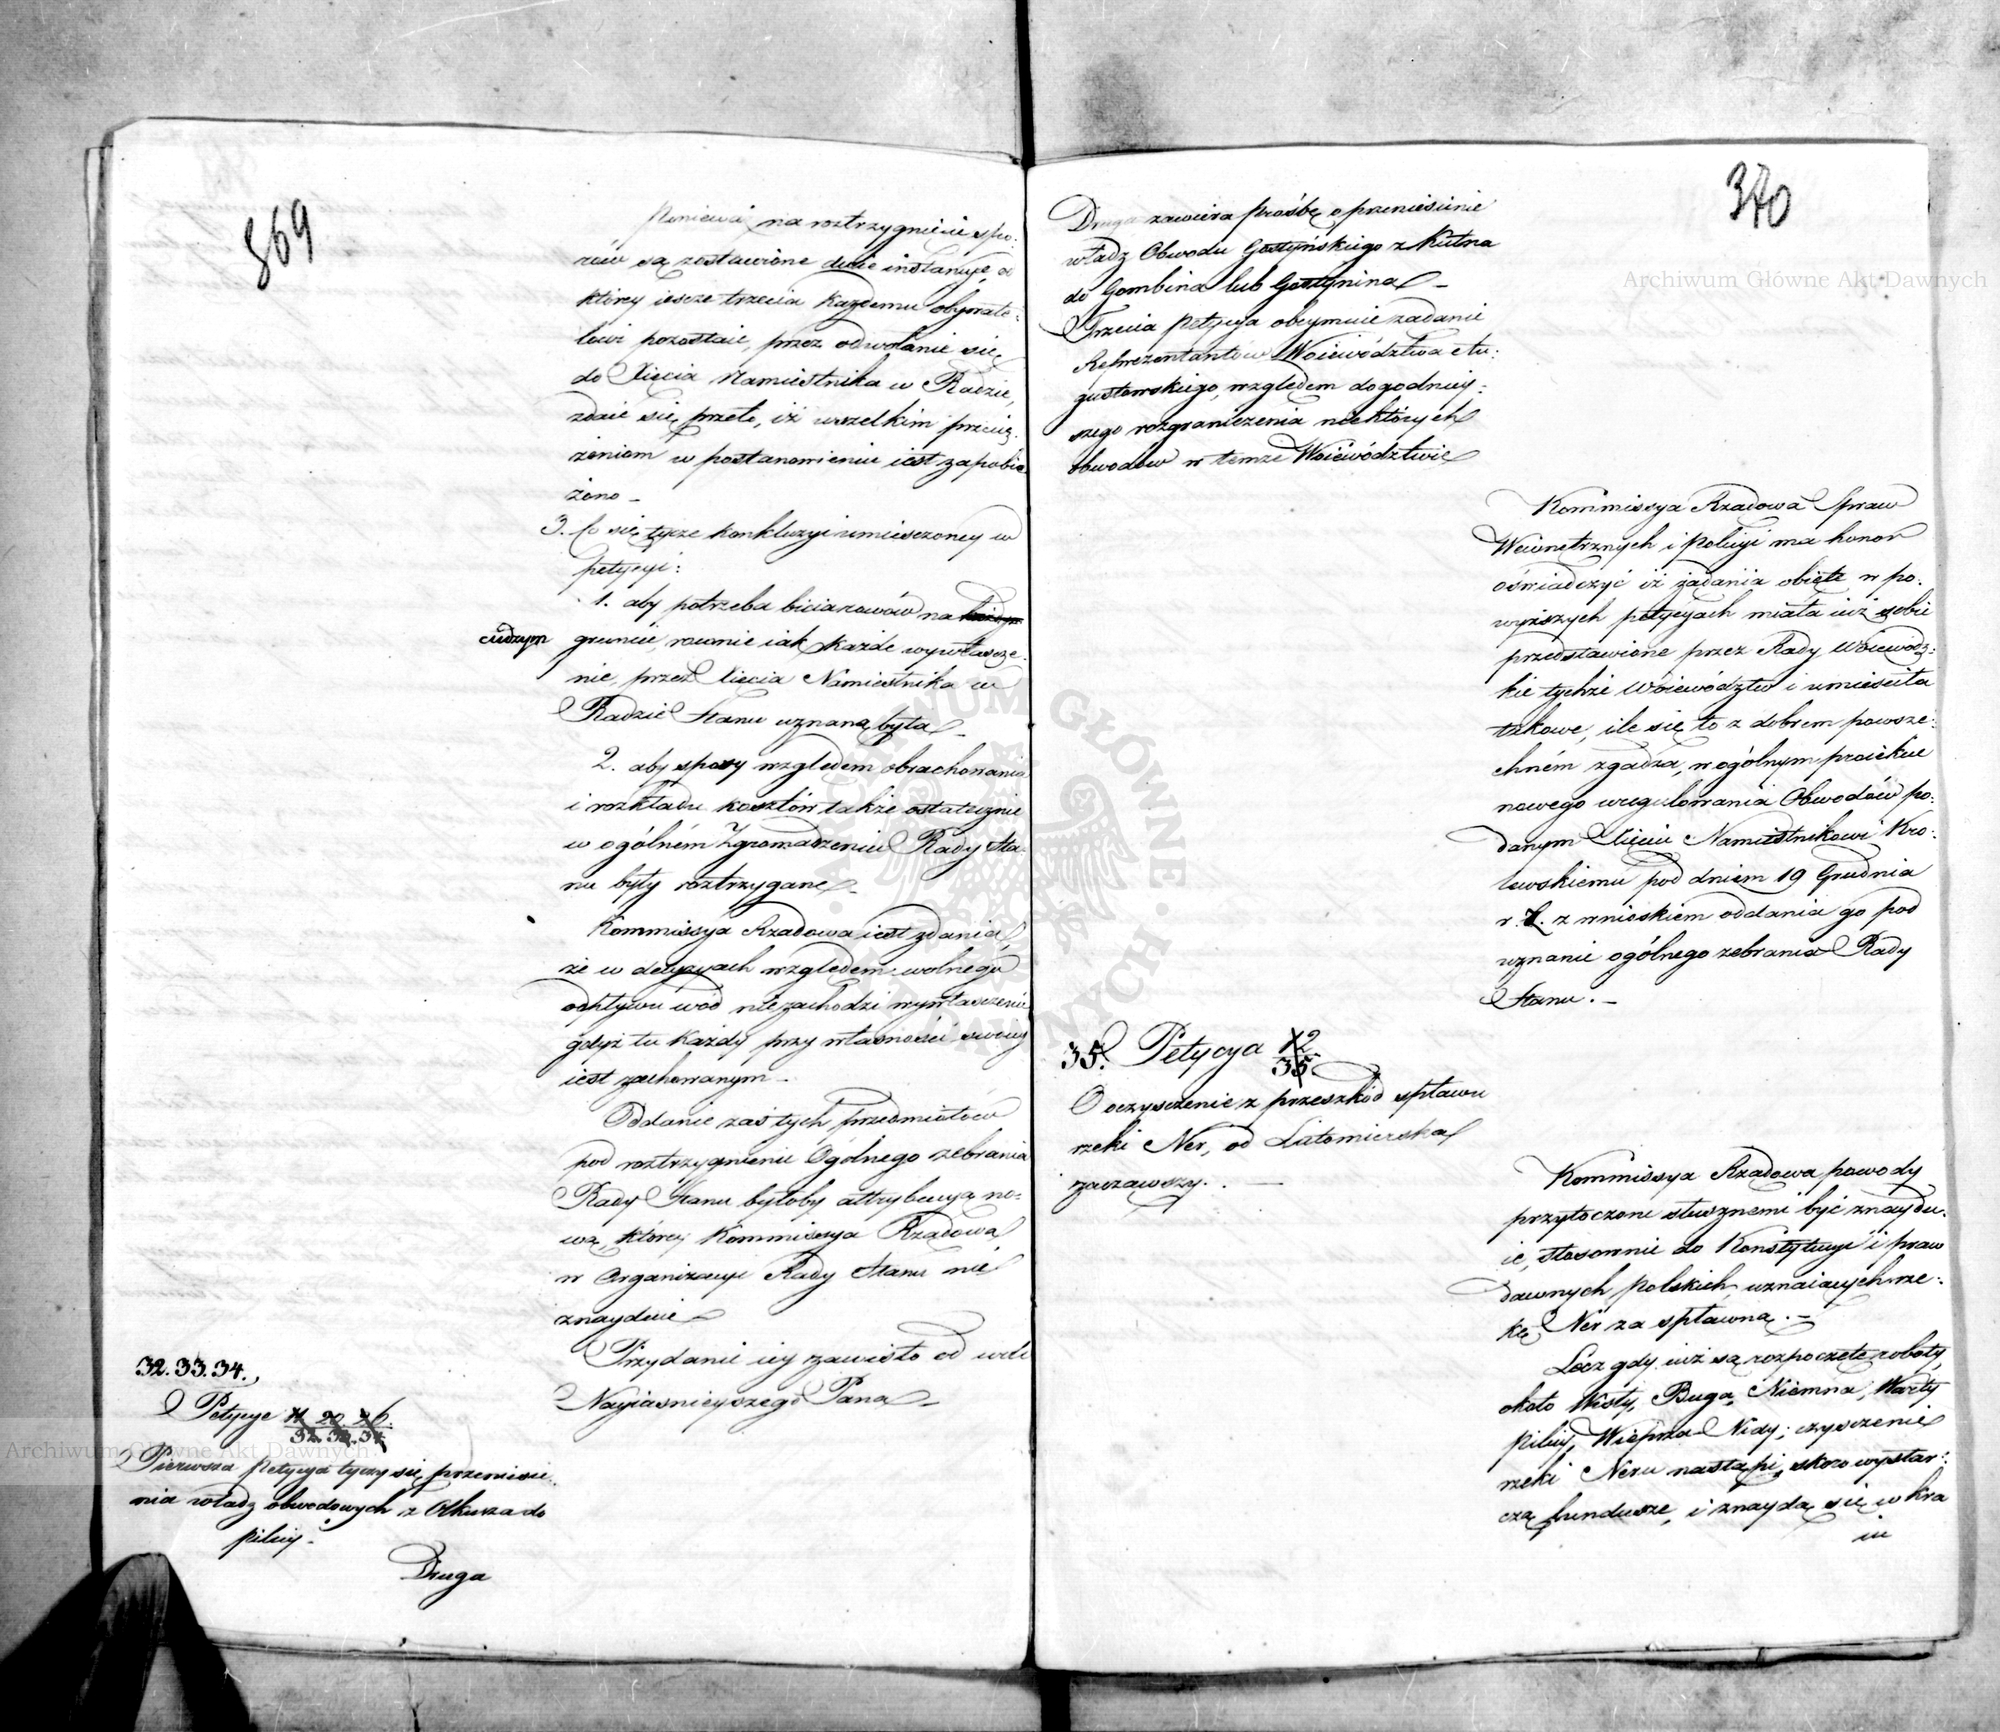 369
Ponieważ na roztrzygnienie spo-
rów są zostawione dwie instancye, a
którey iescze trzecia każdemu obywate-
lowi pozostaie, przez odwołanie się
do Xięcia Namiestnika w Radzie,
zdaie się przeto, iż wszelkim przecią-
żeniom w postanowieniu iest zapobie-
żono –
3. Co się tycze konkluzyi umiesczoney w
petycyi:
1. aby potrzeba biciarowów na
cudzym gruncie, rownie iak każde wywłascze-
nie, przez Xięcia Namiestnika w
Radzie Stanu uznaną była –
2. aby spory względem obrachowania
i rozkładu kosztów także ostatecznie
w ogólném Zgromadzeniu Rady Sta-
nu były roztrzygane –
Kommissya Rządowa iest zdania,
że w decyzyach względem wolnego
odpływu wód nie zachodzi wywłasczenie
gdyż tu każdy przy własności swoiey
iest zachowanym –
Oddanie zaś tych przedmiotów
pod roztrzygnienie Ogólnego zebrania
Rady Stanu byłoby attrybucyą no-
wą, którey Kommissya Rządowa
w Organizacyi Rady Stanu nie
znayduie –
Przydanie iey zawisło od woli
Nayiasnieyszego Pana –
32. 33. 34.
Petycye 11 20 26.
32. 33. 34.
Pierwsza Petycya tyczy się przeniesie-
nia władz obwodowych z Olkusza do
Pilicy –
Druga
370
Druga zawiera prośbę o przeniesienie
władz Obwodu Gostyńskiego z Kutna
do Gombina lub Gostynina –
Trzecia Petycya obeymuie żądanie
Reprezentantów Woiewództwa Au-
gustowskiego, względem dogodniey-
szego rozgraniczenia niektórych
obwodów w temże Woiewództwie
Kommissya Rządowa Spraw
Wewnętrznych i Policyi ma honor
oświadczyć iż żądania obięte w po-
wyższych petycyach miała iuż sobie
przedstawione przez Rady Woiewódz-
kie tychże Woiewództw i umieściła
takowe, ile się to z dobrem powsze-
chném zgadza, w ogólnym proiekcie
nowego uregulowania Obwodów po-
danym Xięciu Namiestnikowi Kró-
lewskiemu pod dniem 19 Grudnia
r. z. z wnioskiem oddania go pod
uznanie ogólnego zebrania Rady
Stanu. –
35. Petycya 12
35
O oczysczenie z przeszkód spławu
rzeki Ner, od Lutomierska
zacząwszy. –
Kommissya Rządowa powody
przytoczone słusznemi być znaydu-
ie, stosownie do Konstytucyi i praw
dawnych Polskich uznaiących rze-
kę Ner za spławną. –
Lecz gdy iuż są rozpoczęte roboty
około Wisły, Buga, Niemna, Warty
Pilicy, Wieprza Nidy; czysczenie
rzeki Neru nastąpi, skoro wystar-
czą fundusze, i znaydą się w kra
iu
Archiwum Główne Akt Dawnych
Archiwum Główne Akt Dawnych